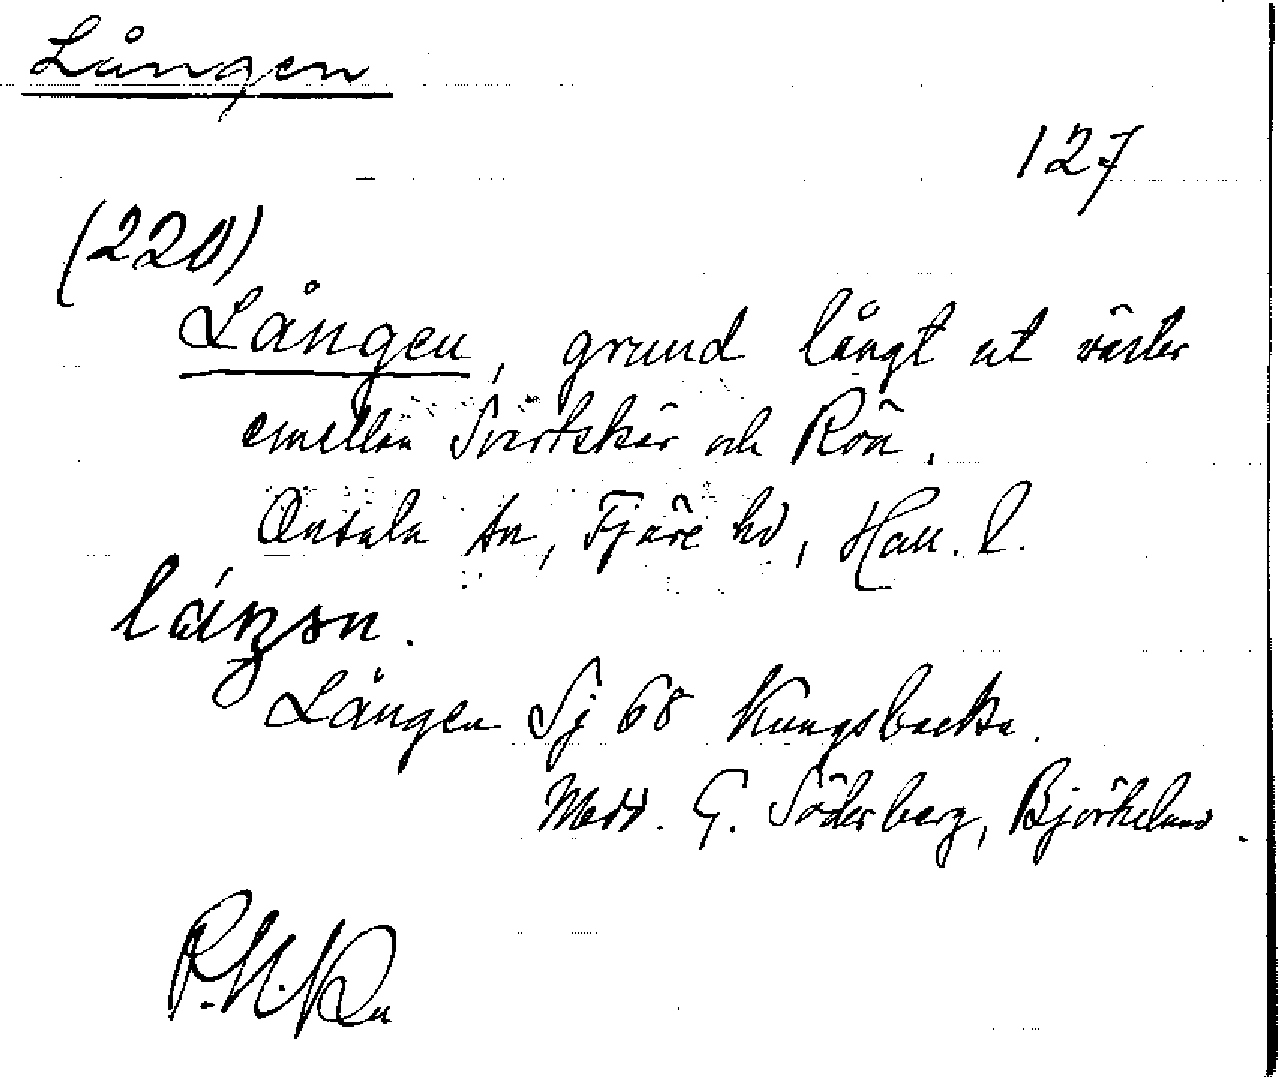 Lången
127
(220)
Lången, grund långt ut väster
emellan Svartskär och Röä.
Onsala sn, Fjäre hd, Hall. l.
Lången Sj 68 Kungsbacka.
Medd. G. Söderberg, Björkelund.